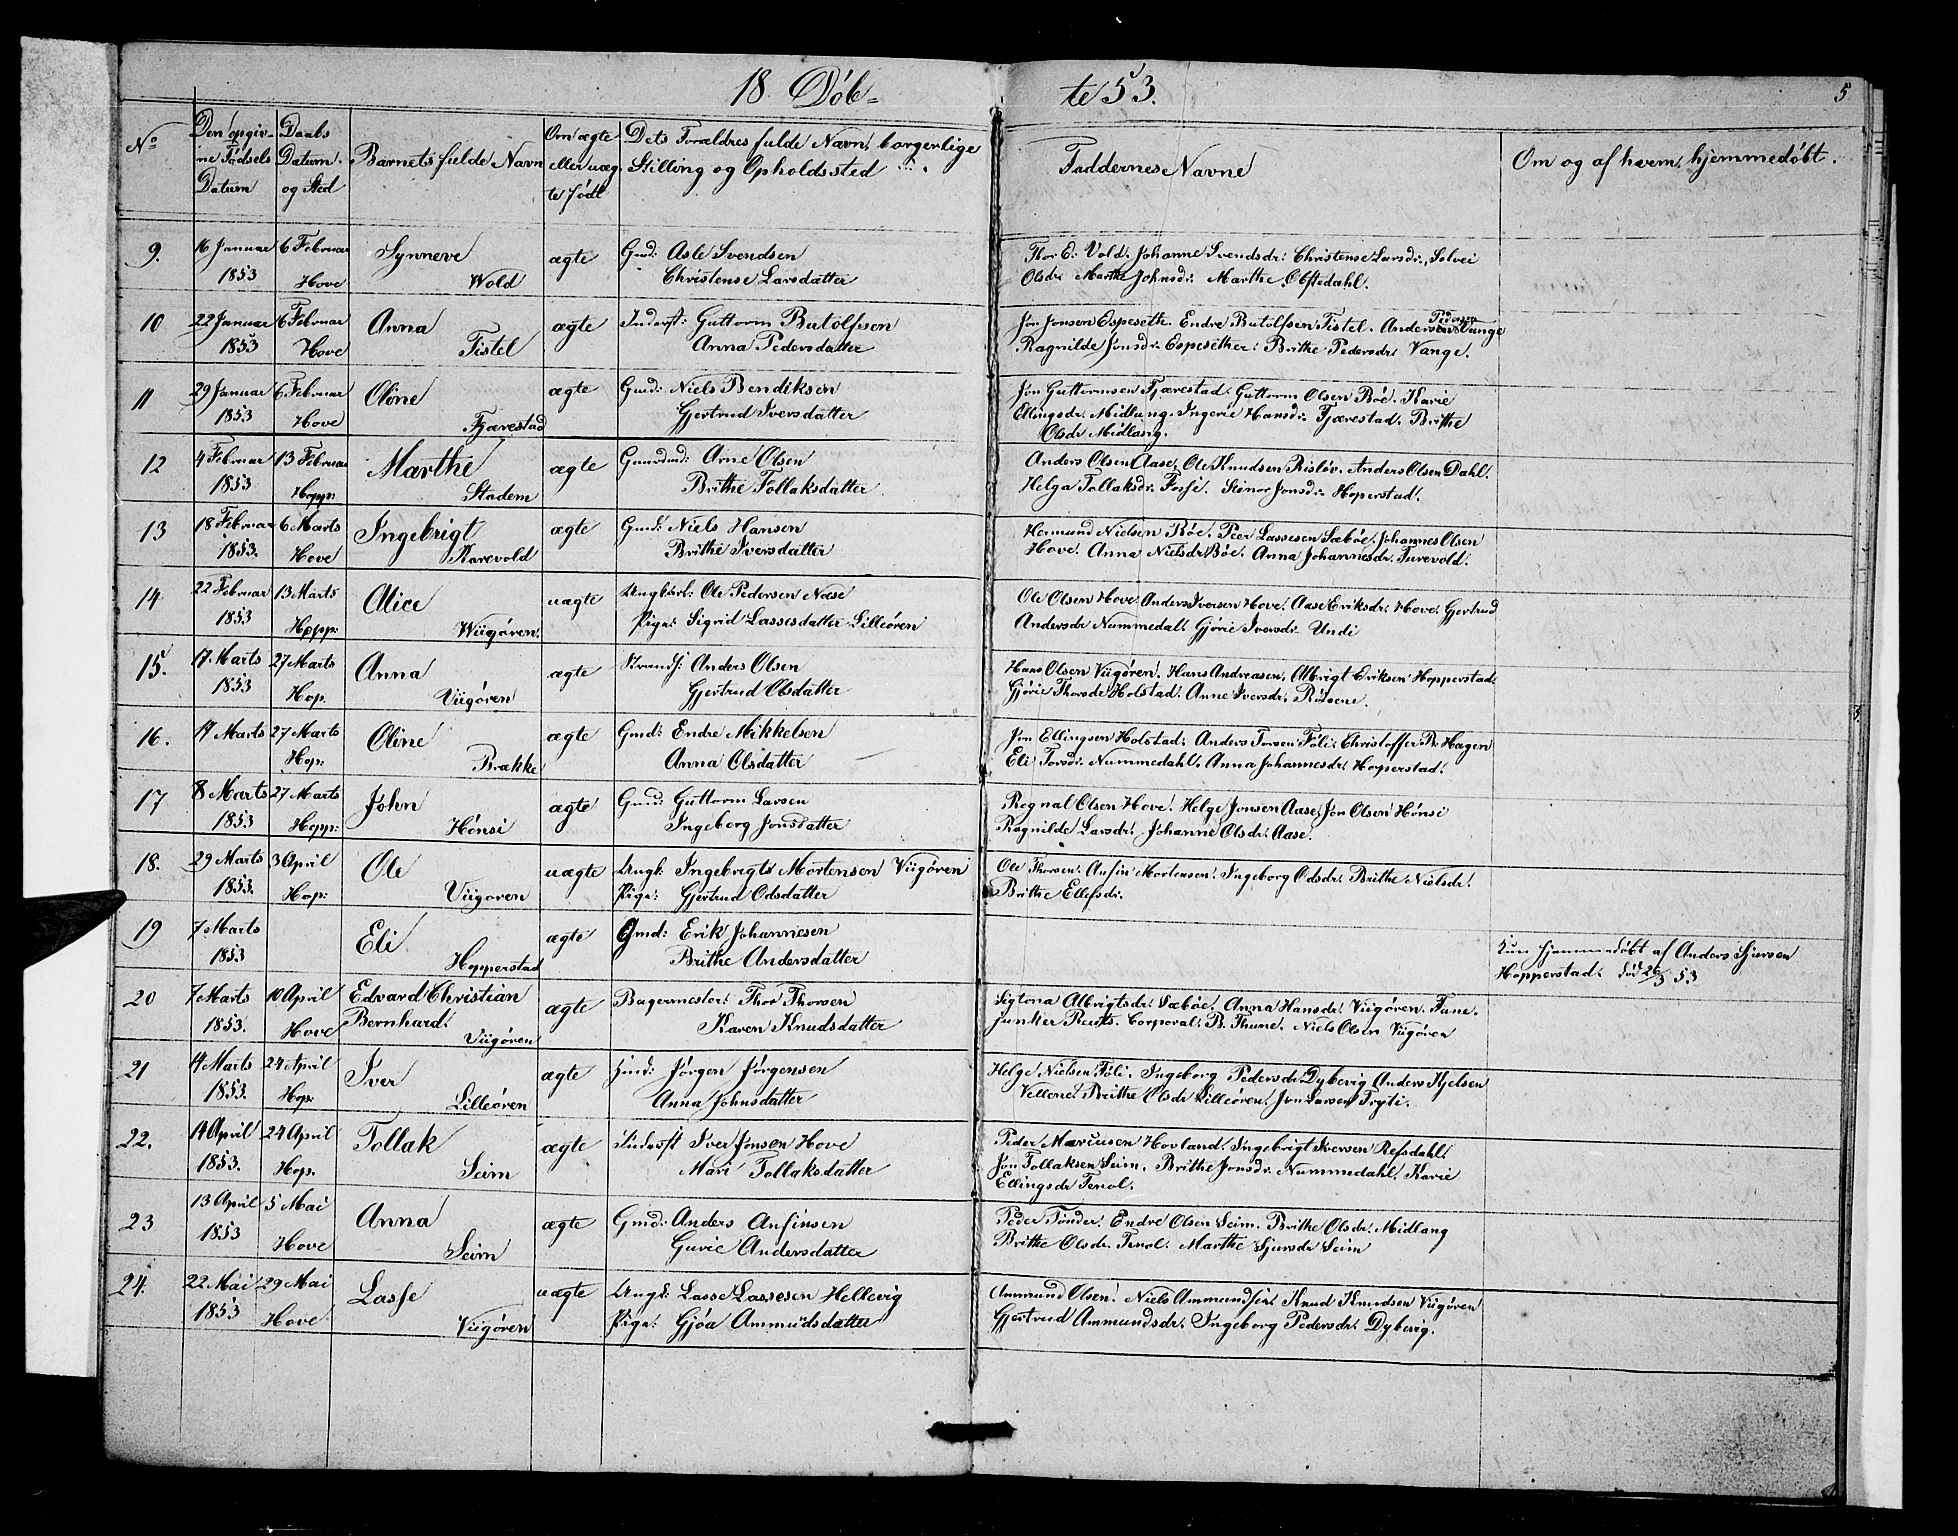 18 Döb=
te 53.
5
No
Den opgiv-
ne Fødsels
Datum
Daabs
Datum
og Sted
Barnets fulde Navn
Om ægte
eller uæg-
te født
Dets Forældres fulde Navn, borgerlige
Stilling og Opholdssted
Faddernes Navne
Om og af hvem, hjemmedøbt.
9. 16 Januar 6 Februar Synneve ægte Gmd: Asle Svendsen Thor E. Vold. Johanne Svendsdr: Christense Larsdr. Solvei
1853 Hove Wold Christense Larsdatter Olsdr Marthe Johnsdr. Marthe Ofstedahl.
10 22 Januar 6 Februar Anna ægte Inderst: Guttorm Butolfsen Jon Jonsen Espeseth. Endre Butolfsen Fistel. Anders Pedersen Vange
1853 Hove Fistel Anna Pedersdatter Ragnilde Jonsdr. Espesether: Brithe Pedersdr: Vange.
11 29 Januar 6 Februar Oline ægte Gmd: Niels Bendiksen Jon Guttormsen Fjærestad. Guttorm Olsen Böe. Karie
1853 Hove Fjærestad Gjertrud Iversdatter Ellingsdr. Midlang. Ingerie Hansdr. Fjærestad. Brithe
Olsdr Midlang.
12 4 Februar 13 Februar Marthe ægte Arne Olsen Anders Olsen Aase, Ole Knudsen Risløv. Anders Olsen Dahl.
1853 Hopp: Stadem Brithe Tollaksdatter. Helga Tollaksdr. Fosse. Jonsdr. Hoperstad.
13 18 Februar 6 Marts Ingebrigt ægte Gmd: Niels Hansen Hermund Nielsen Böe. Peer Lassesen Sæböe. Johannes Olsen
1853. Hove Karevold Brithe Iversdatter Hove. Anna Nielsdr. Böe. Anna Johannesdr. Turevold.
14 22 Februar 13 Marts Alice uægte Ungkarl: Ole Pedersen Næse Ole Olsen Hove. Anders Iversen Hove. Aase Eriksdr. Hove. Gjertrud
1853 Hopp: Wiigören. Pige: Sigrid Lassesdatter Lilleören Andersdr Nummedal. Gjörie Iversdr. Undi
15. 17 Marts 27 Marts Anna ægte Strands: Anders Olsen Hans Olsen Viigören. Hans Andreasen. Albrigt Eriksen Hopperstad.
1853 Hop. Viigören Gjertrud Olsdatter Gjörie Thorsdr Holstad. Anne Iversdr.
16. 17 Marts 27 Marts Oline ægte Gmd: Endre Mikkelsen Jon Ellingsen Holstad. Anders Torsen Föli. Christoffer P. Hagen
Hop. Brække Anna Olsdatter Eli Torsdr. Nummedahl. Anna Johannesdr. Hoperstad.
17 8 Marts 27 Marts John ægte Gmd: Guttorm Larsen Rognal Olsen Hove. Helge Jonsen Aase. Jon Olsen Hönsi
1853 Hopp: Hönsi Ingeborg Jonsdatter Ragnilde Larsdr. Johanne Olsdr. Aase.
18. 29 Marts 3 April Ole uægte Ungk: Ingebrigt Mortensen Viigören Ole Thorsen. Anfin Mortensen. Ingeborg Odsdr. Brithe Nielsdr.
1853. Hop: Viigoren Pige: Gjertrud Odsdatter Brithe Ellefsdr.
19 7 Marts Eli ægte Gmd: Erik Johannesen Kun hjemmedöbt af Anders Sjursen
1853 Hopperstad Brithe Andersdatter Hopperstad. död 26/3 53
20 7 Marts 10 April Edvard Christian ægte Bagermester: Thor Thorsen Sigtona Albrigtsdr. Sæböe. Anna Hansdr. Viigören. Fane-
1853. Hove Bernhard. Viigören Karen Knudsdatter junker Corporal. B. Thune. Niels Olsen Viigören
21 14 Marts 24 April Iver ægte Hmd: Jörgen Jörgensen Helge Nielsen Föli. Ingeborg Pedersdr. Dybevig Anders Kjelsen
1853. Hop: Lilleören Anna Johnsdatter Vellene. Brithe Olsdr Lilleören. Jon Larsen Tryti.
22. 14 April 24 April Tollak ægte Inderst Iver Jonsen Hove Peder Marcusen Hovland. Ingebrigt Iversen Refsdahl.
1853. Hop. Seim Mari Tollaksdatter Jon Tollaksen Seim. Brithe Jonsdr. Nummedahl. Karie
Ellingsdr Tenol.
23 13 April 5 Mai Anna ægte Gmd: Anders Anfinsen Peder Tönder. Endre Olsen Seim. Brithe Olsdr. Midlang
1853 Hove Seim Gurie Andersdatter Brithe Olsdr. Tenol. Marthe Sjursdr Seim
24. 22 Mai 29 Mai Lasse uægte Ungk: Lasse Lassesen Hellevig Ammund Olsen. Niels Ammundsen. Knud Knudsen Viigören
1853 Hove Viigören Pige: Gjöa Ammudsdatter Gjertrud Ammundsdr. Ingeborg Pedersdr. Dybevig.